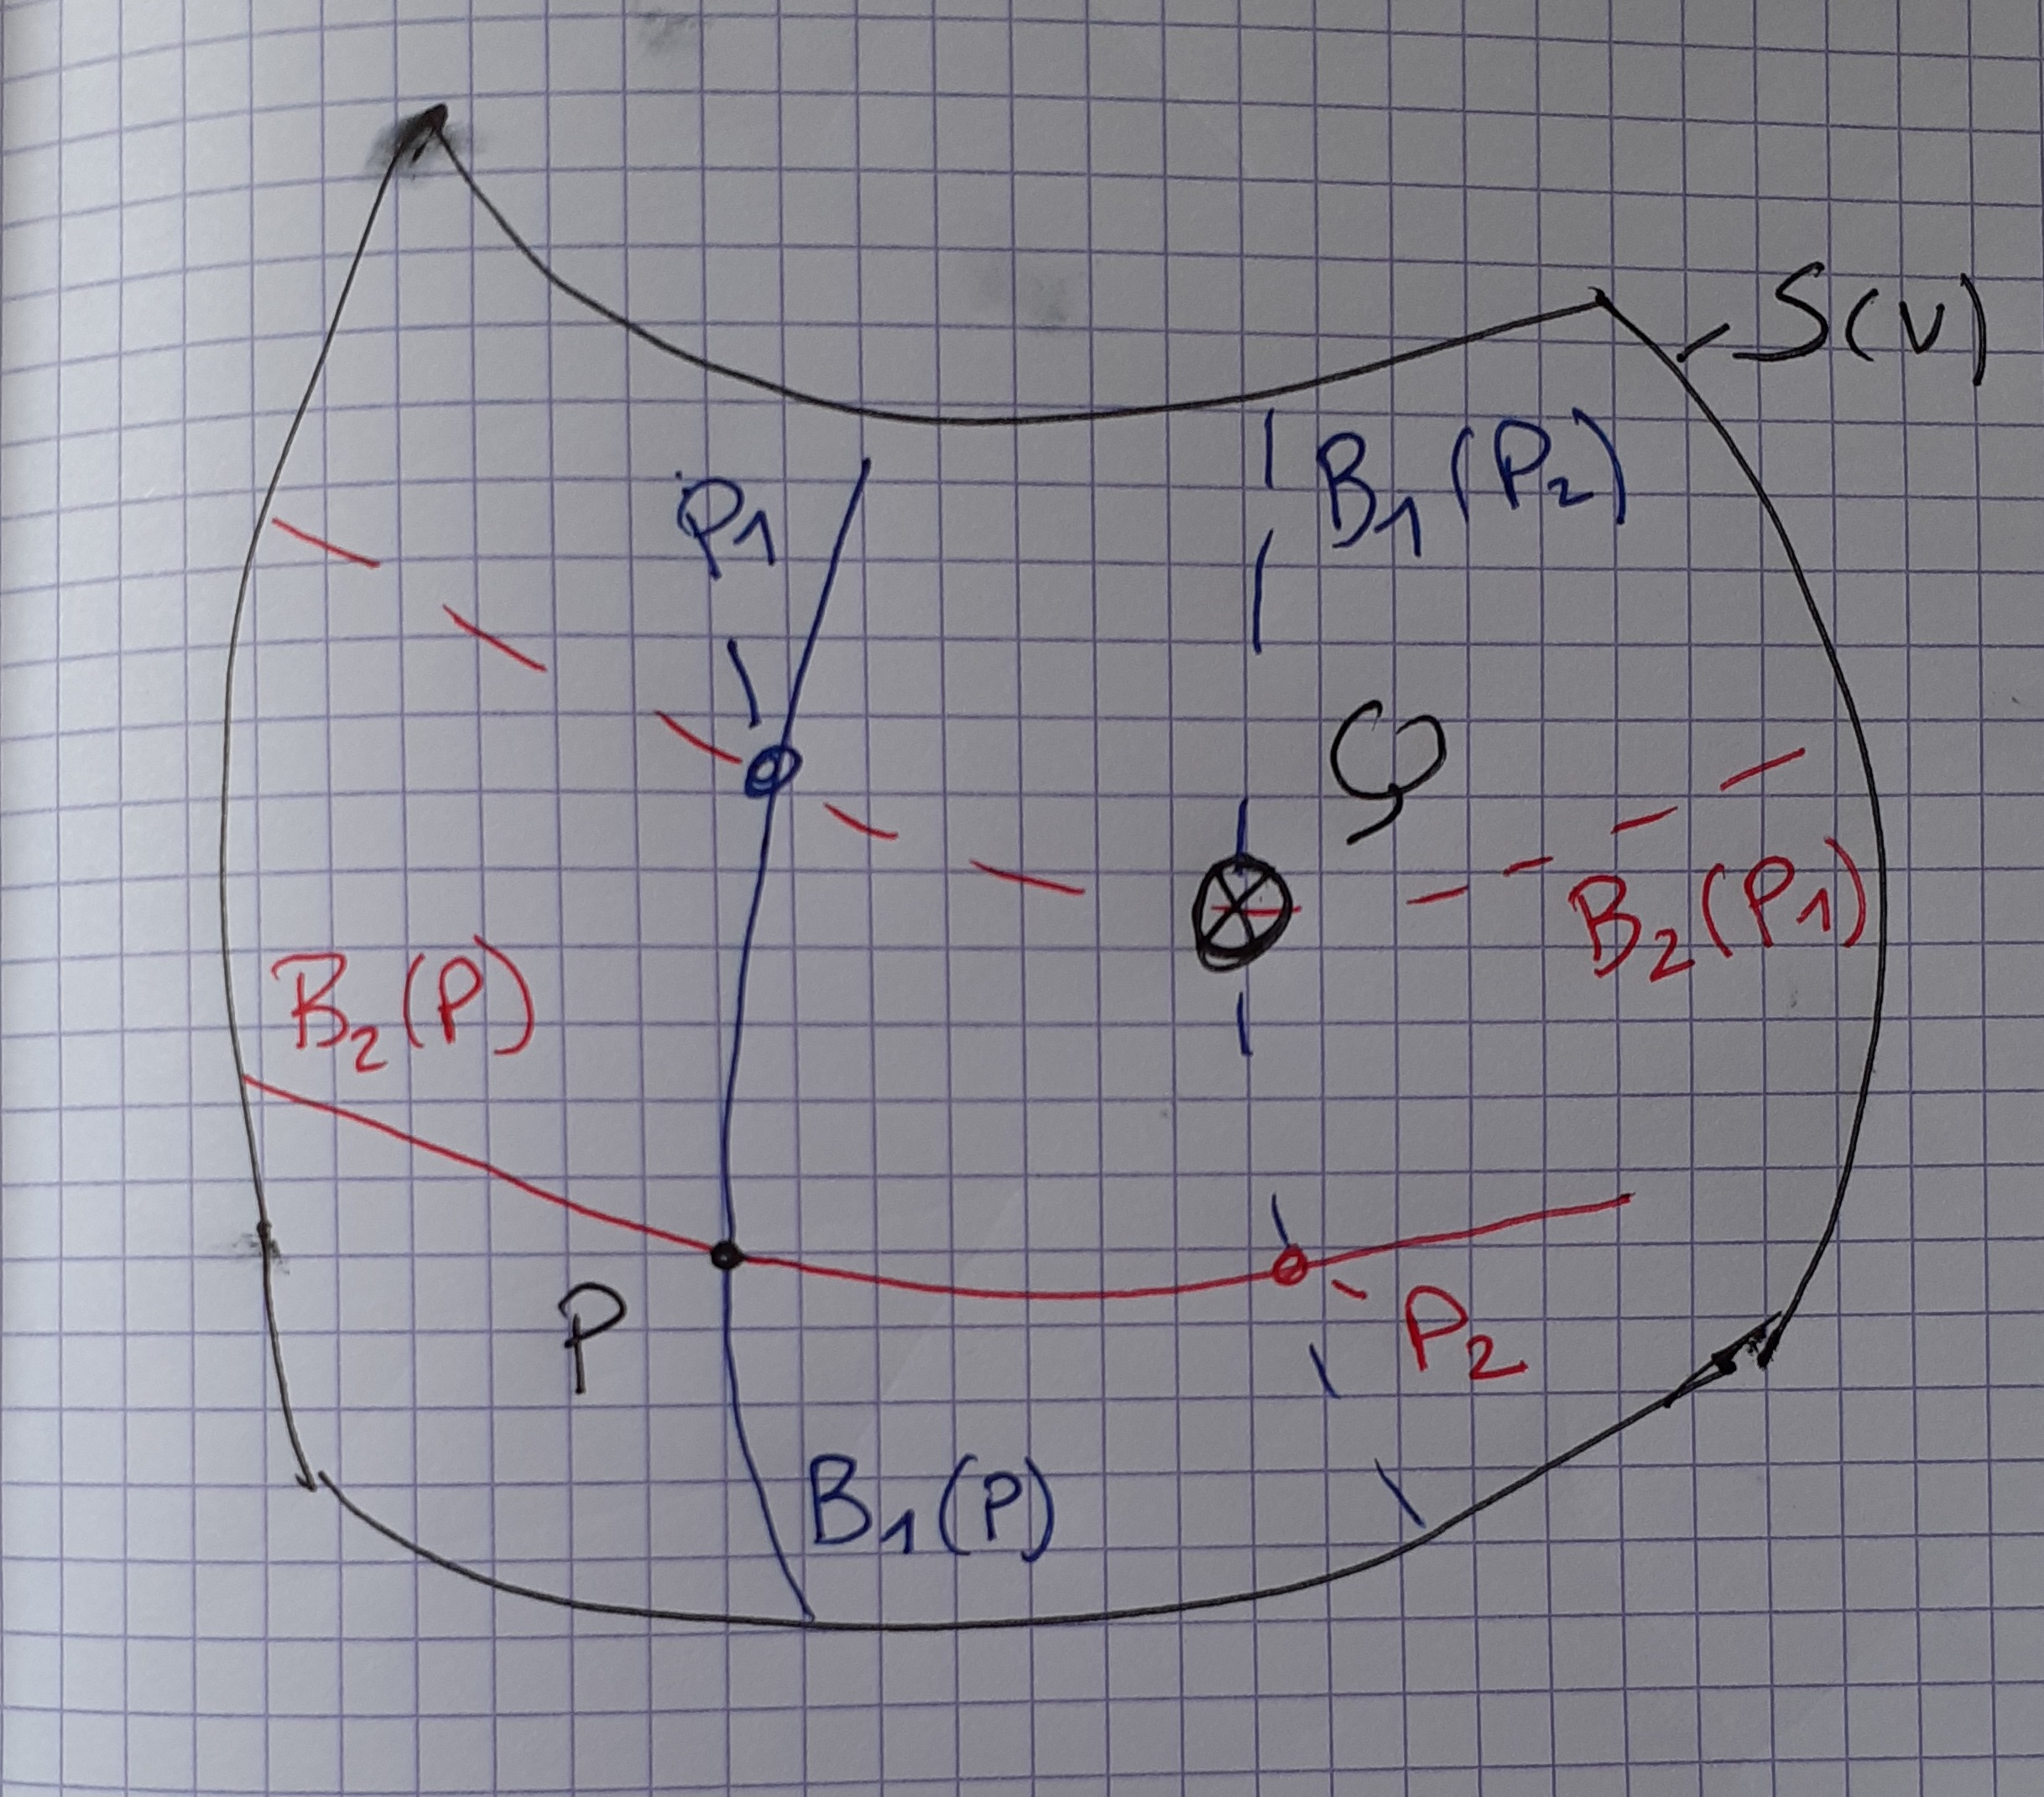 S(V)
P1
B1(P2)
Q
B2(P1)
B2(P)
P
P2
B1(P)